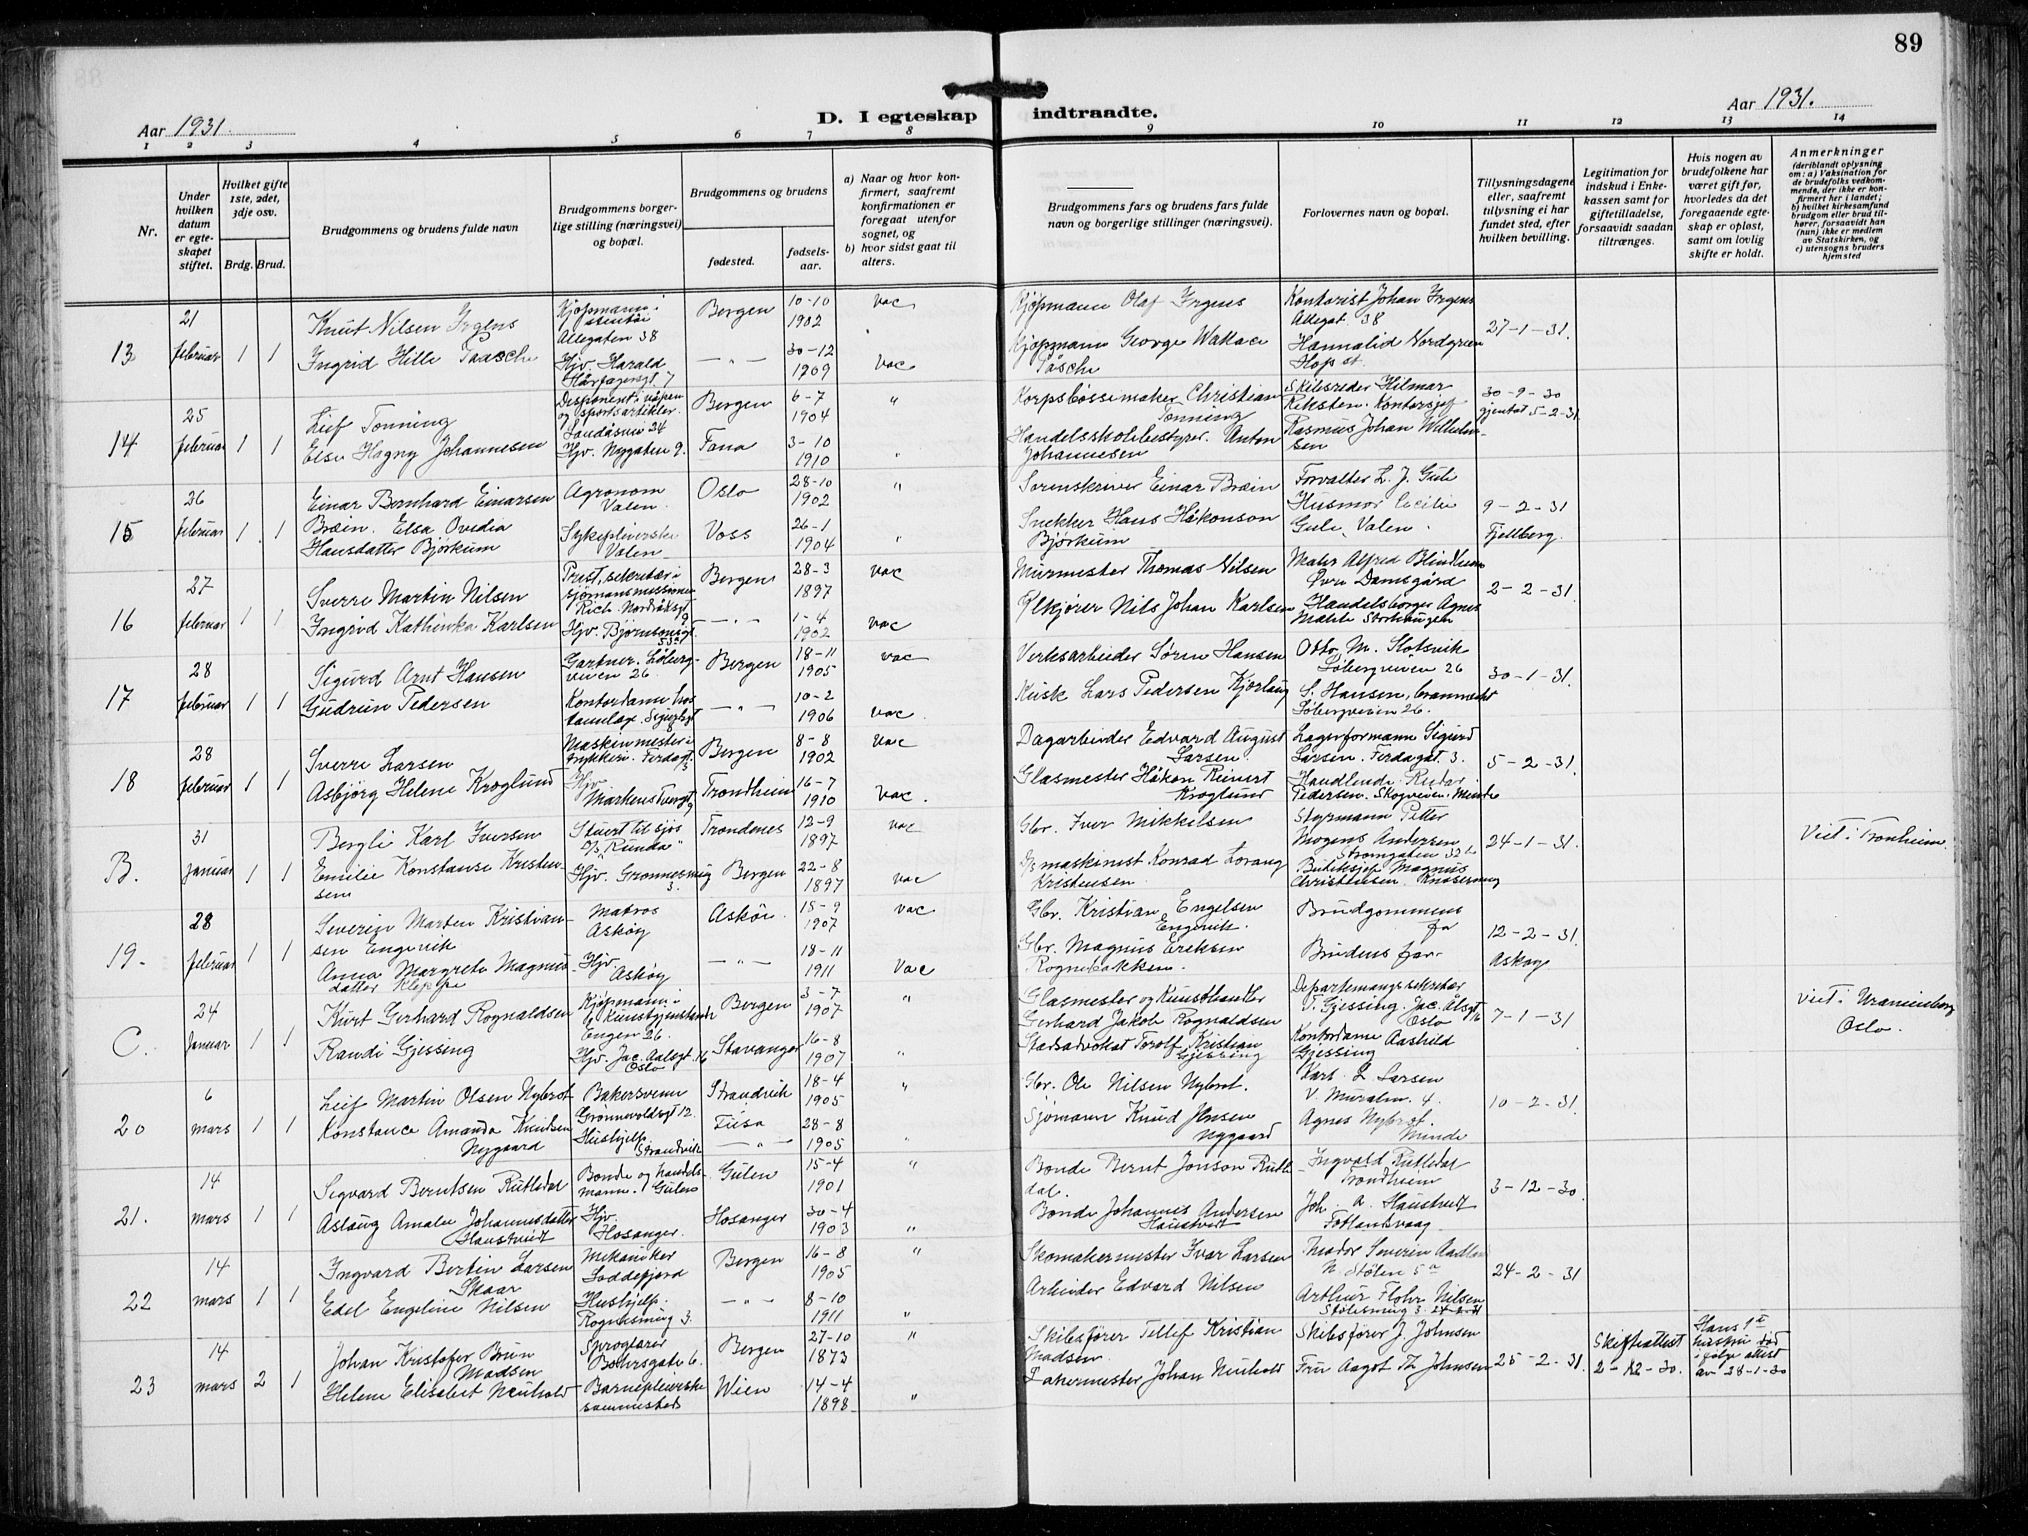 89
Aar 1931.
D. I egteskap indtraadte.
Aar 1931.
1 2 3 4 5 6 7 8 9 10 11 12 13 14
Nr.
Under hvilken datum er egteskapet stiftet.
Hvilket gifte 1ste, 2det, 3dje osv.
Brdg. Brud.
Brudgommens og brudens fulde navn
Brudgommens borgerlige stilling (næringsvei) og bopæl.
Brudgommens og brudens
fødested.
fødselsaar.
a) Naar og hvor konfirmert, saafremt konfirmationen er foregaat utenfor sognet, og
b) hvor sidst gaat til alters.
Brudgommens fars og brudens fars fulde navn og borgerlige stillinger (næringsvei).
Forlovernes navn og bopæl.
Tillysningsdagene eller, saafremt tillysning ei har fundet sted, efter hvilken bevilling.
Legitimation for indskud i Enkekassen samt for giftetilladelse, forsaavidt saadan tiltrænges.
Hvis nogen av brudefolkene har været gift før, hvorledes da det foregaaende egteskap er opløst, samt om lovlig skifte er holdt.
Anmerkninger
(deriblandt oplysning om: a) Vaksination for de brudefolks vedkommende, der ikke er konfirmert her i landet; b) hvilket kirkesamfund brudgom eller brud tilhører, forsaavidt han (hun) ikke er medlem av Statskirken, og c) utensogns bruders hjemsted
13 21 februar 1 1
Knut Nilsen Irgens
Kjøpmann i
Allegaten 38
Bergen 10-10 1902 vac
Kjøpmann Olaf Irgens
Kontorist Johan Irgens
Allegat. 38
27-1-31.
Ingrid Hille Paasche
Hjv. Harald
Hårfagersgt 7
— " — 30-12 1909 vac
Kjøpmann George Wallace
Påsche
Nordgreen
Hop st.
14 25 februar 1 1
Leif Tonning
Disponent i våpen
og sportsartikler.
Landåsvei 24
Bergen 6-7 1904 "
Korpsbøssemaker Christian
Tonning
Skibsreder Hilmar
Reksten. Kontorsjef
30-9-30
gjentat 5-2-31.
Else Hagny Johannesen
Hjv. Nygaten 9.
Fana 3-10 1910 "
Handelsskolebestyrer. Anton
Johannesen
Rasmus Johan Wilhelmsen
15 26 februar 1 1
Einar Bernhard Einarsen
Bræin. Elsa Ovedia
Hansdatter Bjørkum
Agronom
Valen.
Oslo 28-10 1902 "
Sorenskriver Einar Bræin
Forvalter L. J. Gule
Husmor Cecilie
Gule, Valen.
9-2-31
Fjellberg.
Sykepleierske
Valen
Voss 26-1 1904 "
Snekker Hans Håkonson
Bjørkum
16 27 februar 1 1
Sverre Martin Nilsen
Prest, sekretær i
sjømansmissionen
Rich. Nordråksgt
9
Bergen 28-3 1897 vac
Murmester Thomas Nilsen
Maler Alfred Blindheim
Øvre Damsgård
2-2-31.
Ingrid Kathinka Karlsen
Hjv. Bjørnsonsgt.
— " — 1-4 1902 vac
Nils Johan Karlsen
Handelsborger Agnes
Malete Storhaugen
17 28 februar 1 1
Sigurd Arnt Hansen
Gartner. Løbergveien 26.
Bergen 18-11 1905 vac
Verksarbeider Søren Hansen
Otto M. Slotsvik
Løbergveien 26
30-1-31.
Gudrun Pedersen
Kontordame hos
— " — 10-2 1906 vac.
Kusk Lars Pedersen
S. Hansen,
Løbergveien 26.
18 28 februar 1 1
Sverre Larsen
Maskinmester i
trykkeri. Ferdagt
3
Bergen 8-8 1902 vac
Dagarbeider Edvard August
Larsen
Lagerformann Sigurd
Larsen. Ferdagat. 3.
5-2-31.
Asbjørg Helene Kroglund
Hjv.
Trondheim 16-7 1910 vac.
Glasmester Håkon Reinert
Kroglund
Handlende Reidar
Pedersen. Skogveien. Minde
B. 31 januar 1 1
Bergli Karl Iversen
Stuert til sjøs
D/S "Runda"
Trondenes 12-9 1897 vac
Gbr. Iver Mikkelsen
Styrmann Petter
Mogens Andersen
Strømgaten
24-1-31.
Viet i Tronheim.
Emilie Konstanse Kristensen
Hjv. Grønnesmug
3.
Bergen 22-8 1897 vac
D/S maskinist Konrad Lorang
Kristensen
Butiksjef Magnus
Christensen.
19. 28 februar 1 1
Severin Marten Kristiansen Engevik
Matros
Askøy
Askøi. 15-9 1907 vac
Gbr. Kristian Engelsen
Engevik.
Brudgommens
far
12-2-31.
Askøy
Anna Margrete Magnusdatter Kleppe
Hjv.
Askøy
— " — 18-11 1911 vac
Gbr. Magnus Eriksen
Rognebakken.
Brudens far
C. 24 januar 1 1
Kurt Gerhard Rognaldsen
Kjøpmann i
kunstgjenstande
Engen 26.
Bergen 3-7 1907 "
Glasmester og Kunsthandler
Gerhard Jakob Rognaldsen
Departementssekretær
T. Gjessing. Jac. Alsgt
Oslo
7-1-31
Viet i Uranienborg
Oslo.
Randi Gjessing
Hjv. Jac. Aalsgt. 16
Oslo
Stavanger 16-8 1907 "
Stadsadvokat Torolf Kristian
Gjessing
Kontordame Aashild
Gjessing
20 6 mars 1 1
Leif Martin Olsen Nybrot
Bakersvenn
Grønnevoldsgt 12.
Strandvik 18-4 1905 "
Gbr. Ole Nilsen Nybrot.
Karl L. Larsen
V. Muralm. 4.
10-2-31.
Konstance Amanda Knudsen
Nygaard
Hushjelp.
Strandvik
Fusa
— " — 28-8 1905 "
Sjømann Knud Jensen
Nygaard
Agnes Nybrot.
Minde
21. 14 mars 1 1
Segvard Berntsen Rutledal
Bonde og handelsmann. Gulen
Gulen 15-4 1901 "
Bonde Bernt Jonson Rutledal.
Ingvald Rutledal
Trondheim
3-12-30.
Aslaug Amalie Johannesdatter
Haustveit
Hjv.
Hosanger.
Hosanger 30-4 1903 "
Bonde Johannes Andersen
Haustveit
Joh. A. Haustveit
Fotlandsvaag
22 14 mars 1 1
Ingvard Bertin Larsen
Skaar
Mekaniker
Loddefjord
Bergen 16-8 1905 "
Skomakermester Ivar Larsen
Severin
N. Stølen 5a
24-2-31
Edel Engeline Nilsen
Hushjelp.
Rognesmug 3.
— " — 8-10 1911 "
Arbeider Edvard Nilsen
Arthur Flohr Nilsen
Stølesmug 3. 24-2-31
23 14 mars 2 1
Johan Kristofer Brun
Madsen
Sprogtarer
6.
Bergen 27-10 1873 "
Skibsfører Tellef Kristian
Madsen.
Skibsfører J. Johnsen
25-2-31.
Skifteattest
2-12-30.
Hans 1st
hustru død
ifølge attest
av 28-1-30
Helene Elisabet Neuhold
Barnepleierske
sammesteds
Wien 14-4 1898 "
Johan Neuhold
Fru Aagot Th Johnsen